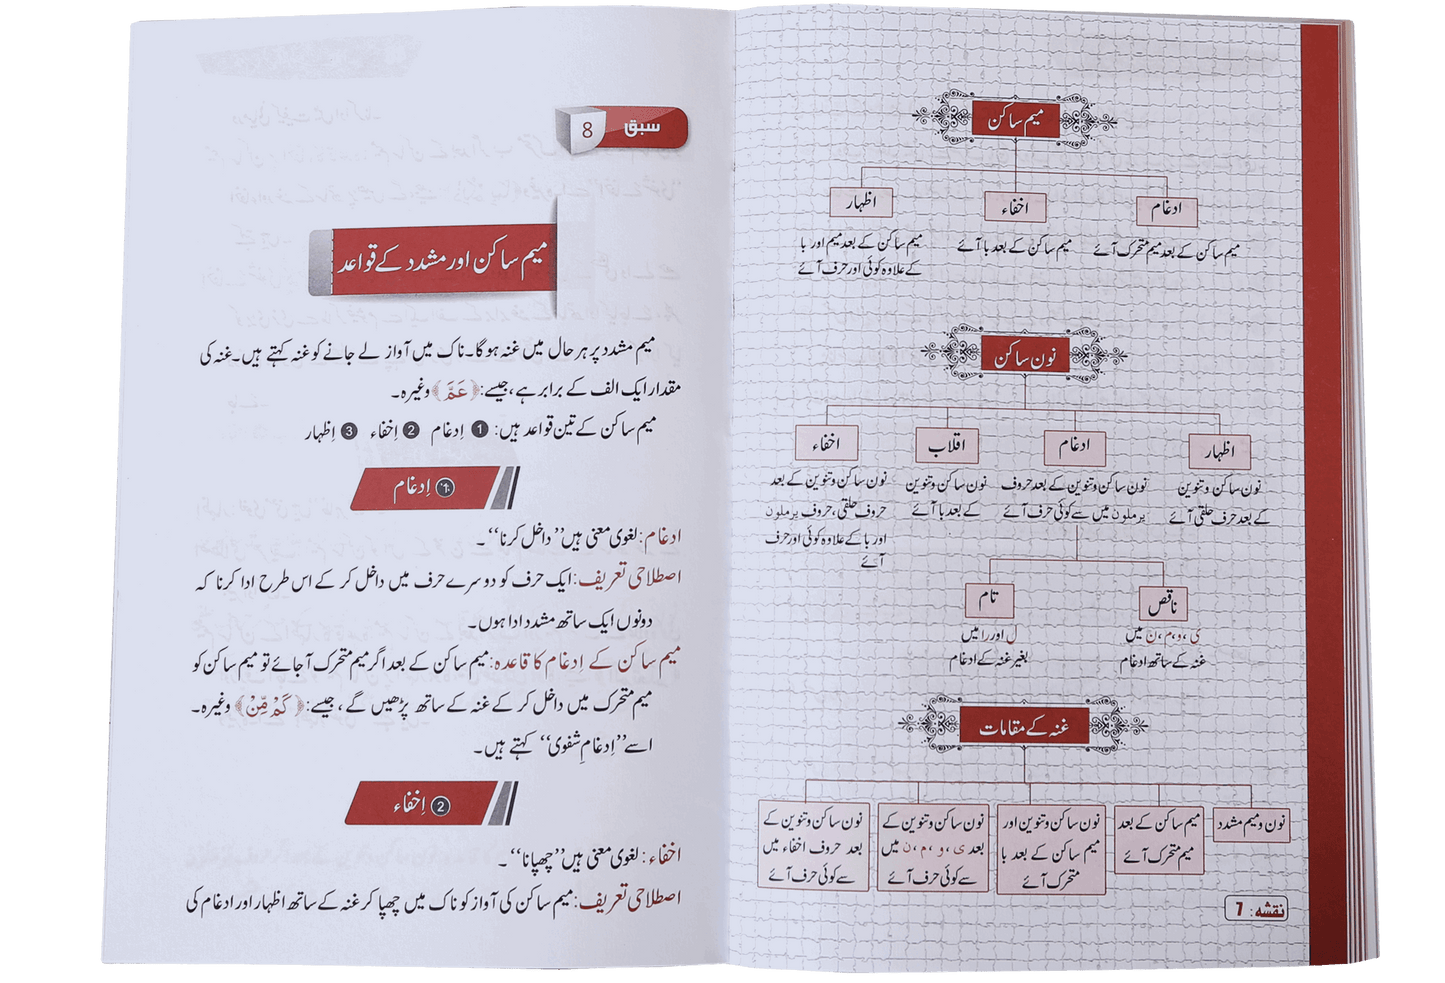 میم ساکن
ادغام
اخفاء
اظہار
میم ساکن کے بعد میم متحرک آئے
میم ساکن کے بعد با آئے
میم ساکن کے بعد میم اور با
کے علاوہ کوئی اور حرف آئے
نون ساکن
اظہار
ادغام
اقلاب
اخفاء
نون ساکن و تنوین
کے بعد حرف حلقی آئے
نون ساکن و تنوین کے بعد حروف
یرملون میں سے کوئی حرف آئے
نون ساکن و تنوین
کے بعد با آئے
نون ساکن و تنوین کے بعد
حروف حلقی، حروف یرملون
اور با کے علاوہ کوئی اور حرف
آئے
ناقص
تام
ی، و، م، ن میں
غنہ کے ساتھ ادغام
ل اور را میں
بغیر غنہ کے ادغام
غنہ کے مقامات
نون و میم مشدد
میم ساکن کے بعد
میم متحرک آئے
نون ساکن و تنوین اور
میم ساکن کے بعد با
متحرک آئے
نون ساکن و تنوین کے
بعد ی، و، م، ن میں
سے کوئی حرف آئے
نون ساکن و تنوین کے
بعد حروف اخفاء میں
سے کوئی حرف آئے
نقشہ: 7
سبق 8
میم ساکن اور مشدد کے قواعد
میم مشدد پر ہر حال میں غنہ ہوگا۔ ناک میں آواز لے جانے کو غنہ کہتے ہیں۔ غنہ کی
مقدار ایک الف کے برابر ہے، جیسے: ﴿عَمَّ﴾ وغیرہ۔
میم ساکن کے تین قواعد ہیں: ❶ اِدغام ❷ اِخفاء ❸ اِظہار
❶ اِدغام
ادغام: لغوی معنی ہیں ’’داخل کرنا‘‘۔
اصطلاحی تعریف: ایک حرف کو دوسرے حرف میں داخل کر کے اس طرح ادا کرنا کہ
دونوں ایک ساتھ مشدد ادا ہوں۔
میم ساکن کے اِدغام کا قاعدہ: میم ساکن کے بعد اگر میم متحرک آجائے تو میم ساکن کو
میم متحرک میں داخل کر کے غنہ کے ساتھ پڑھیں گے، جیسے: ﴿كَمْ مِّنْ﴾ وغیرہ۔
اسے ’’اِدغامِ شفوی‘‘ کہتے ہیں۔
❷ اِخفاء
اخفاء: لغوی معنی ہیں ’’چھپانا‘‘۔
اصطلاحی تعریف: میم ساکن کی آواز کو ناک میں چھپا کر غنہ کے ساتھ اظہار اور ادغام کی